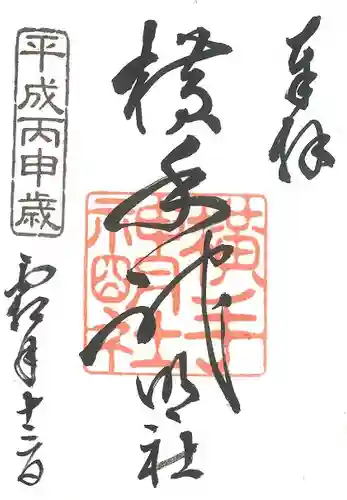 奉拝
横手神明社
横手神明社
平成丙申歳
霜月十二日